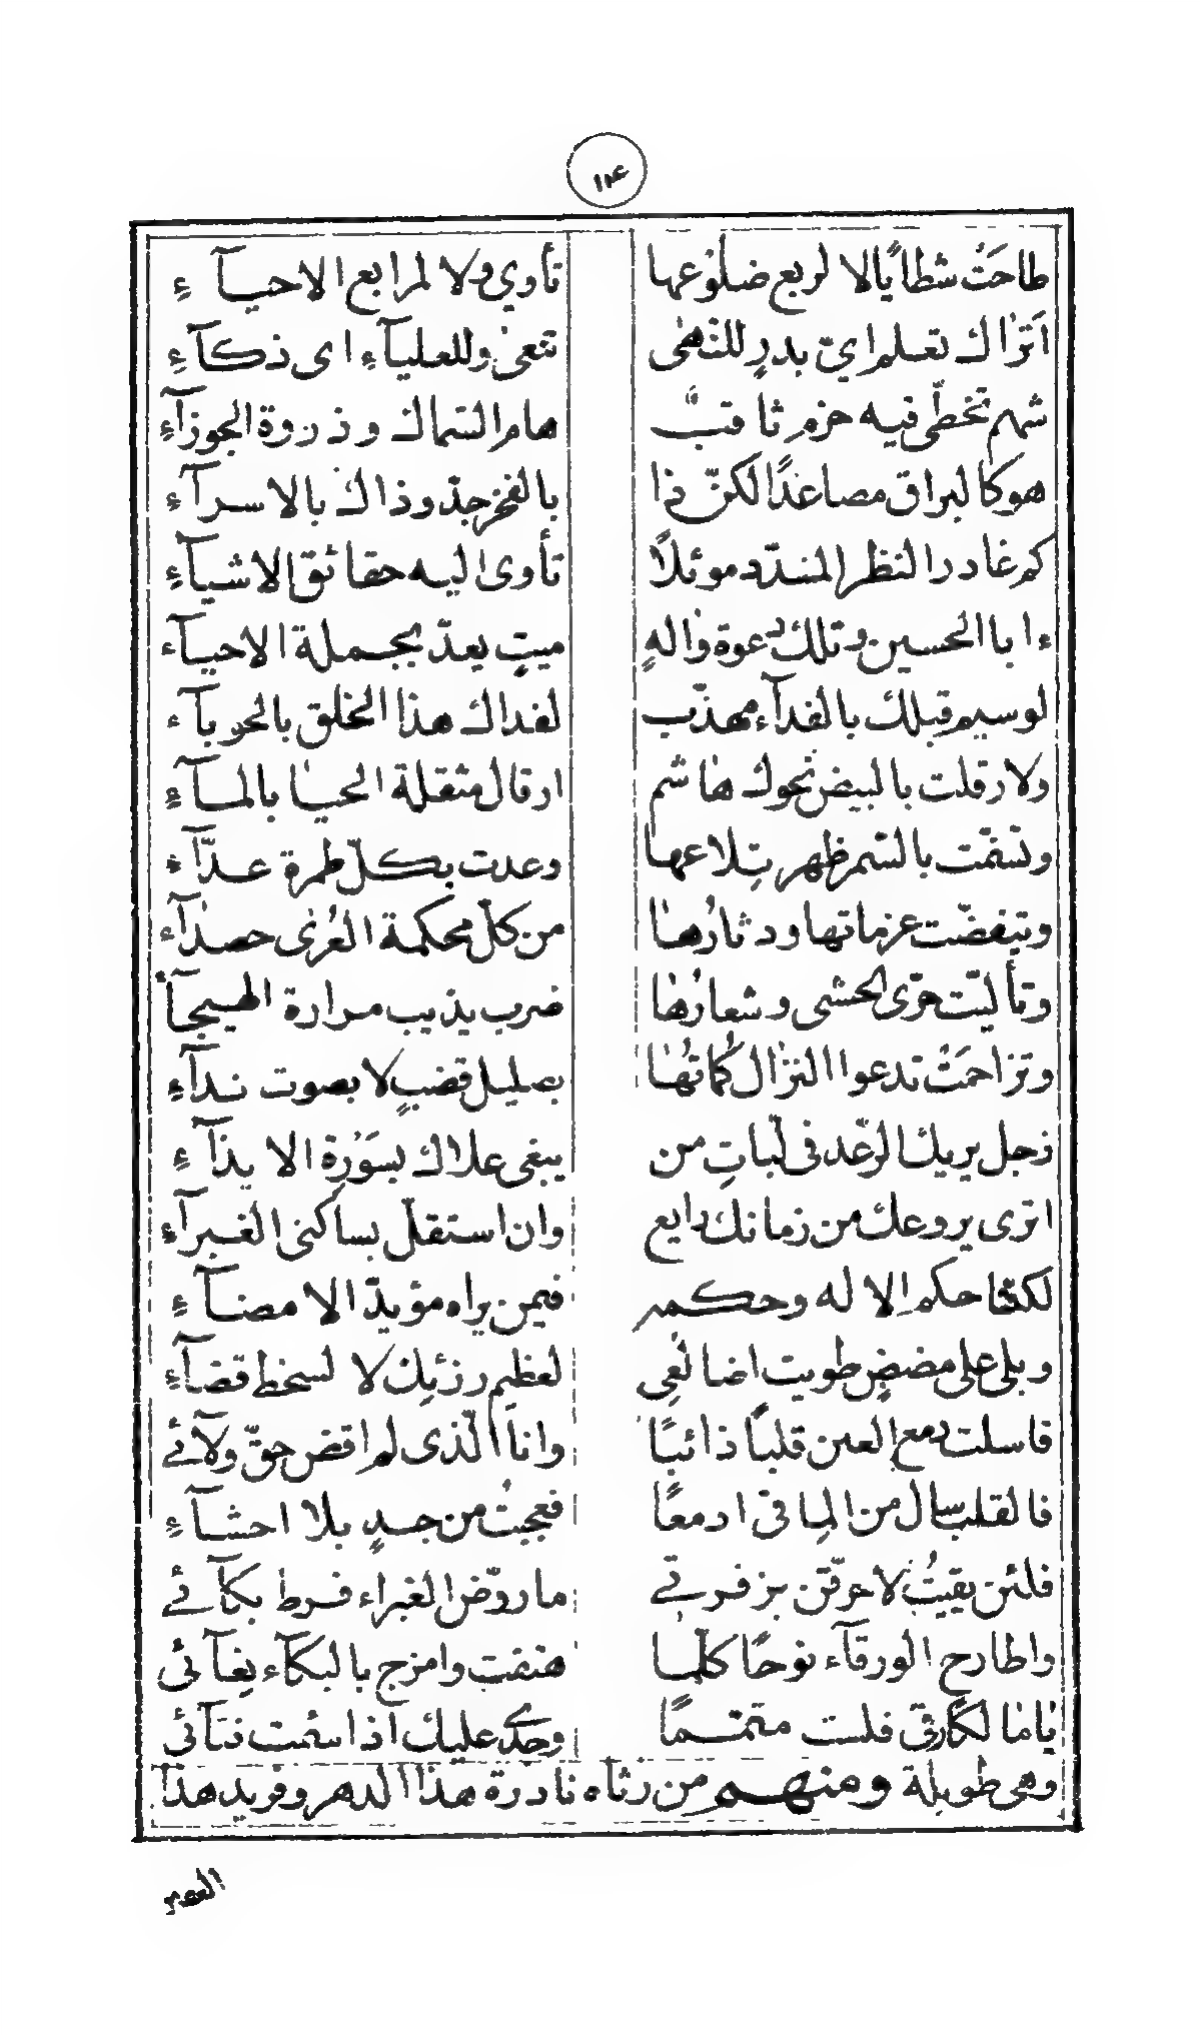 ١٢٤
طاحَتْ شظاًيًا لا لربع ضلوْعها تأوي ولا لمرابع الاحيــآءِ
اَتَرٰاك تعلم ايّ بدرٍ للنُّهٰى تنعىٰ وللعليآءِ اى ذكآءِ
شهم تخطّى فيه حزم ثاقبٌ هام السّماك وذروة الجوزآءِ
هو كالبراق مصاعدًا لكنّ ذا بالفخر جدّ وذاك بالاسرآء
كم غادر النظر المسدّد موئلًا تأوى اليه حقائق الاشيآءِ
ءابا الحسين وتلك دعوة والهٍ ميتٍ يعدّ بجملة الاحيــآء
لو سيم قبلك بالفدآء مهذّب لفداك هذا الخلق بالحوبآء
ولارقلت بالبيض نحوك هاشم ارقال مثقلة الحيــا بالمــآءِ
وتسنّمت بالسّمر ظهر تِلاعها وعدت بكلّ طمرة عــدّآء
وتيفضّت عزماتها ودثارُهـا من كلّ محكمة العُرٰى حصدٰآء
وتألّيت حرّى الحشى وشعارُها ضرب يذيب مرارة الهــيجــآءِ
وتزاحمَتْ تدعوا النزال كُماتُها بصليل قضبٍ لا بصوت نــدآءِ
زجل يريك الرّعد فى لبّاتِ من يبغى علاك بسَوْرة الايذآءِ
اترى يروعك من زمانك رايع وان استقلّ بساكنى الغــبرآء
لكنّما حكم الاله وحكمـه فيمن يراه مؤيدّ الامضــآءِ
وبلى على مضضٍ طويت اضالعى لعظيم رزئِك لا لسخط قضآءِ
فاسلت دمع العين قلبًا ذائبًا وانا الّذى لم اقض حقّ ولآئے
فالقلب سال من الماقى ادمعًا فعجبتُ من جــدٍ بلا احشــآءِ
فلئن بقيتُ لاحرّقن بزفرتے ما روّض الغبراء فرط بكآئے
واطارح الورقآء نوحًا كلّمــا هتفت وامزج بالبكآء بغآئى
يا مالكًا رقّى فلست متمّـمًا وجدى عليك اذا سئمت فنآئى
وهى طويلة ومنهــم من رثاه نادرة هذا الدهر وفريد هذا
العصر